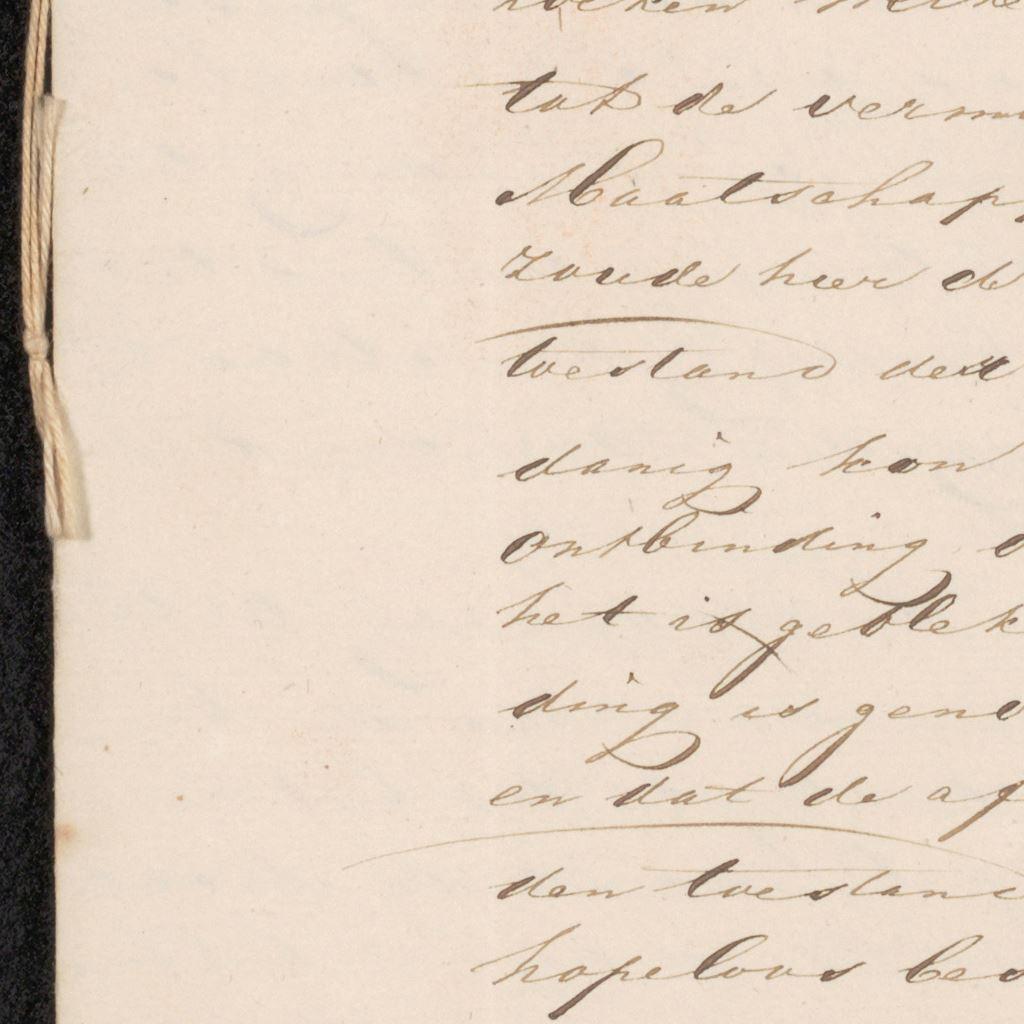 tot de verm
Maatschap
zoude hier de
toestand der
danig kon
ontbinding
het is geblek
ding is geno
en dat de af
den toestand
hopeloos bes